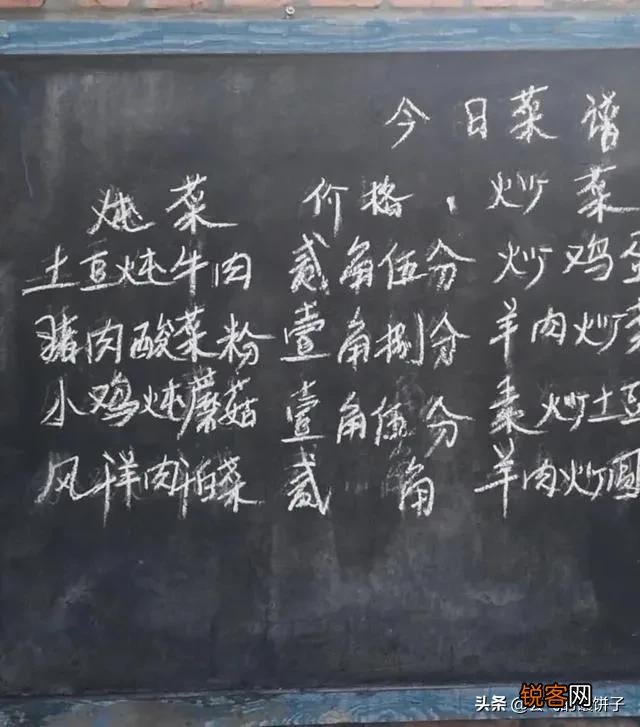 今日菜谱
炖菜 价格、炒菜
土豆炖牛肉 贰角伍分 炒鸡蛋
猪肉酸菜粉 壹角捌分 羊肉炒
小鸡炖蘑菇 壹角伍分 素炒土豆
风洋肉 贰角 羊肉炒圆
头条
锐客网
饼子